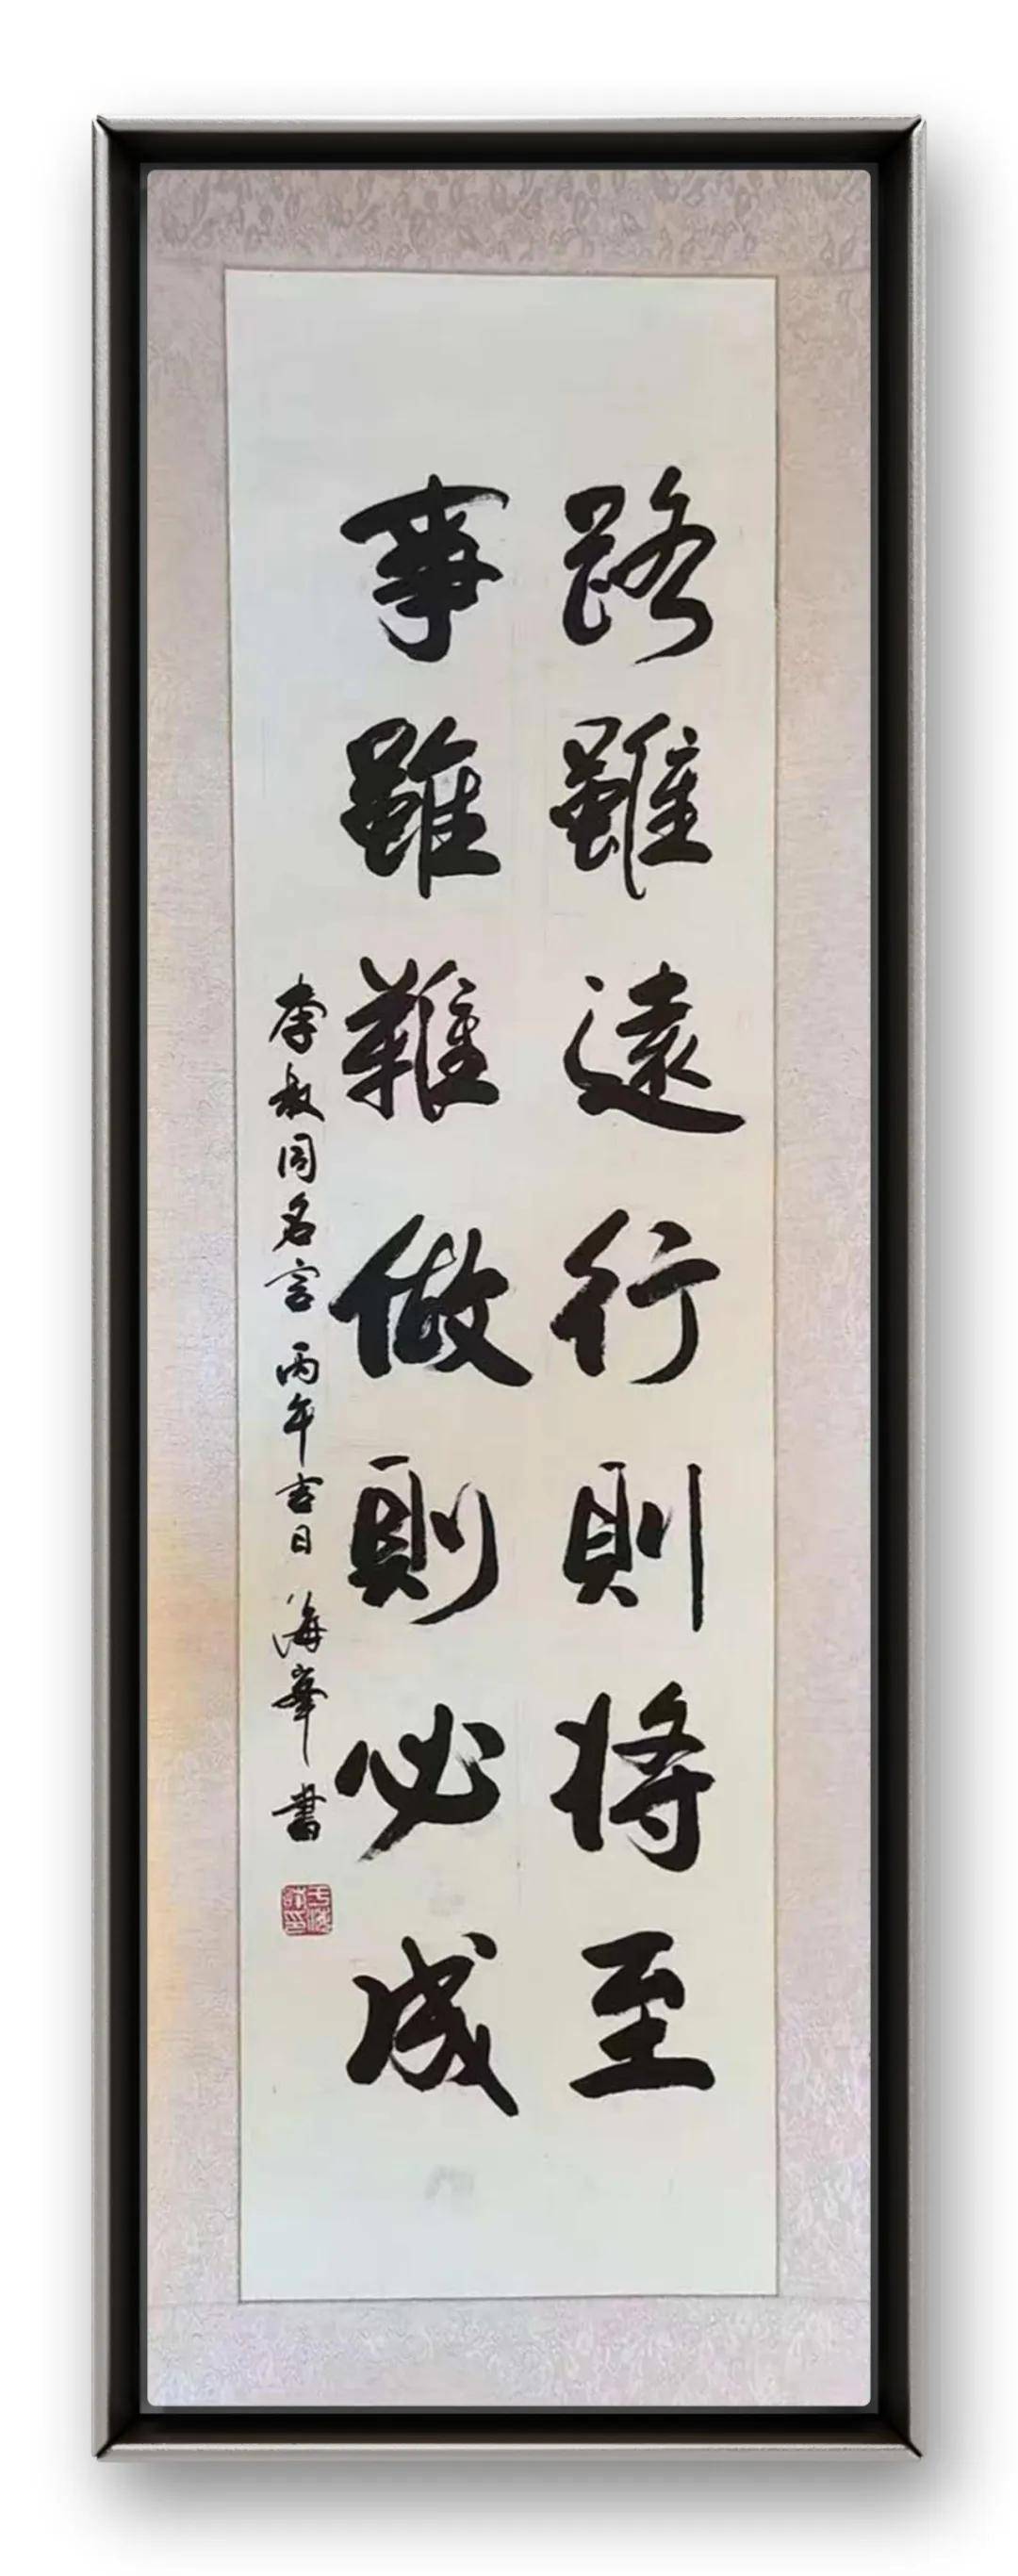 路雖遠行則將至
事雖難做則必成
李叔同名言 丙午吉日 海峯書